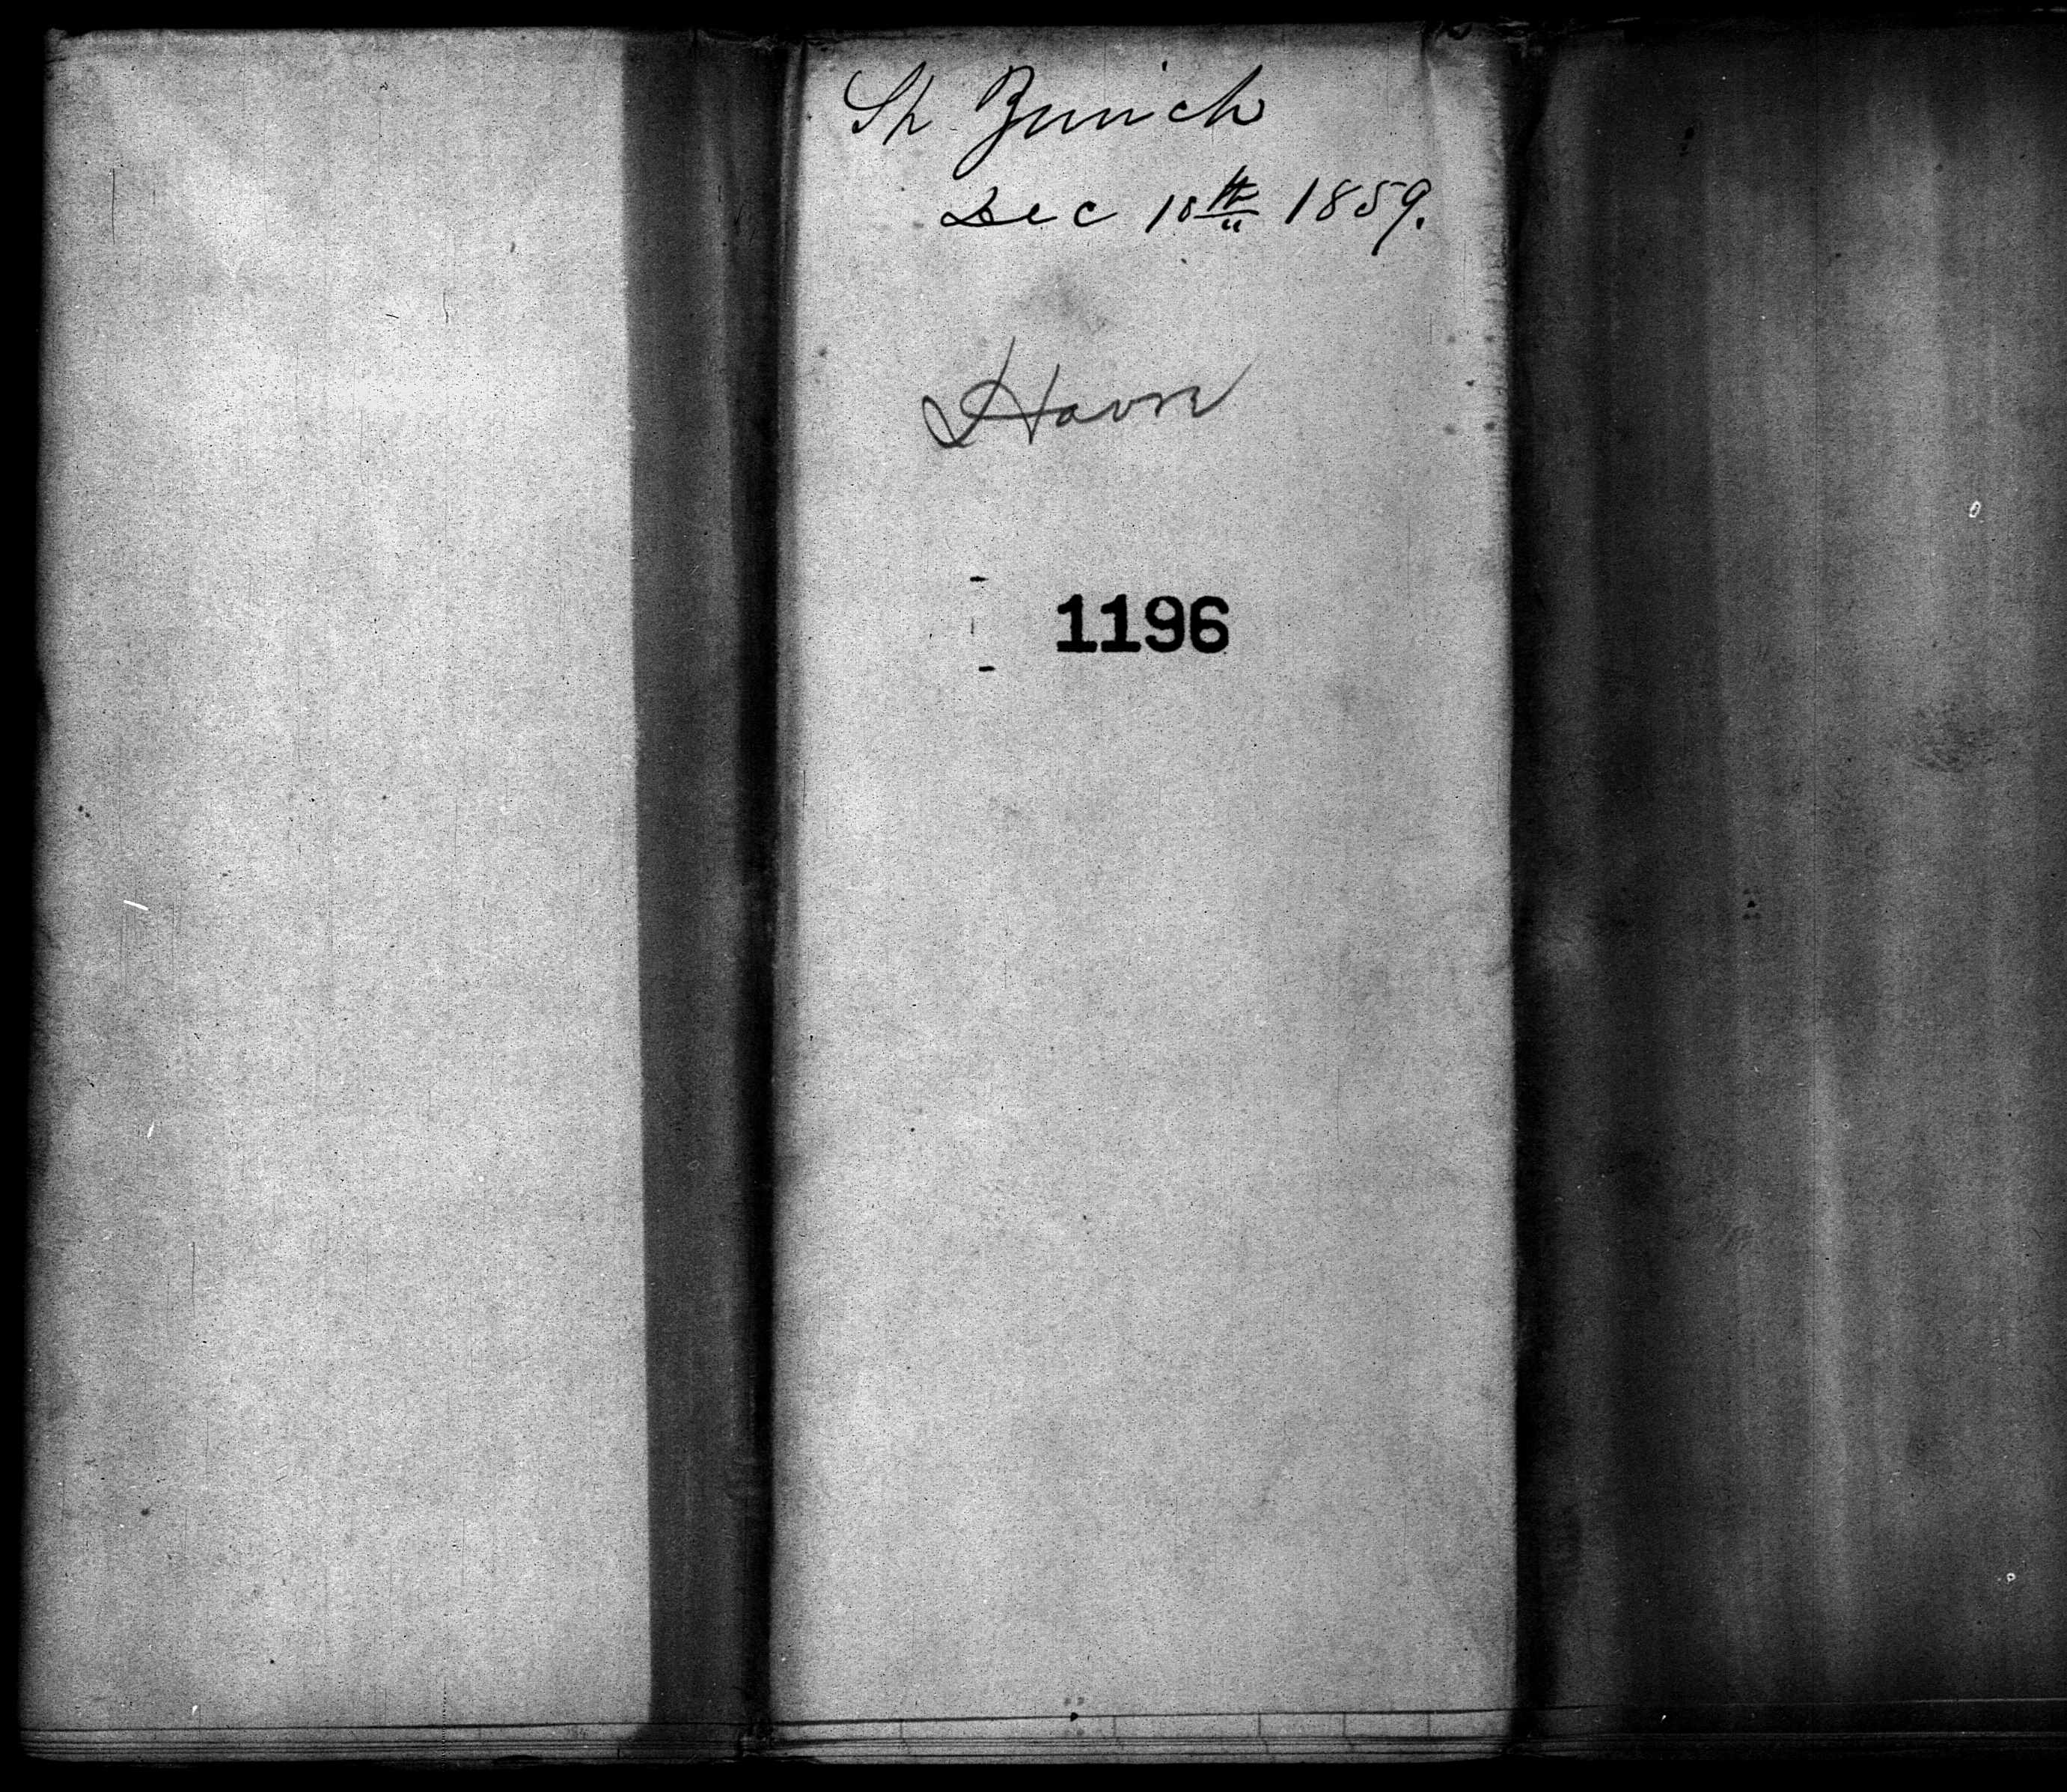 Sh Zurich
Dec 10th 1859.
Havre
1196